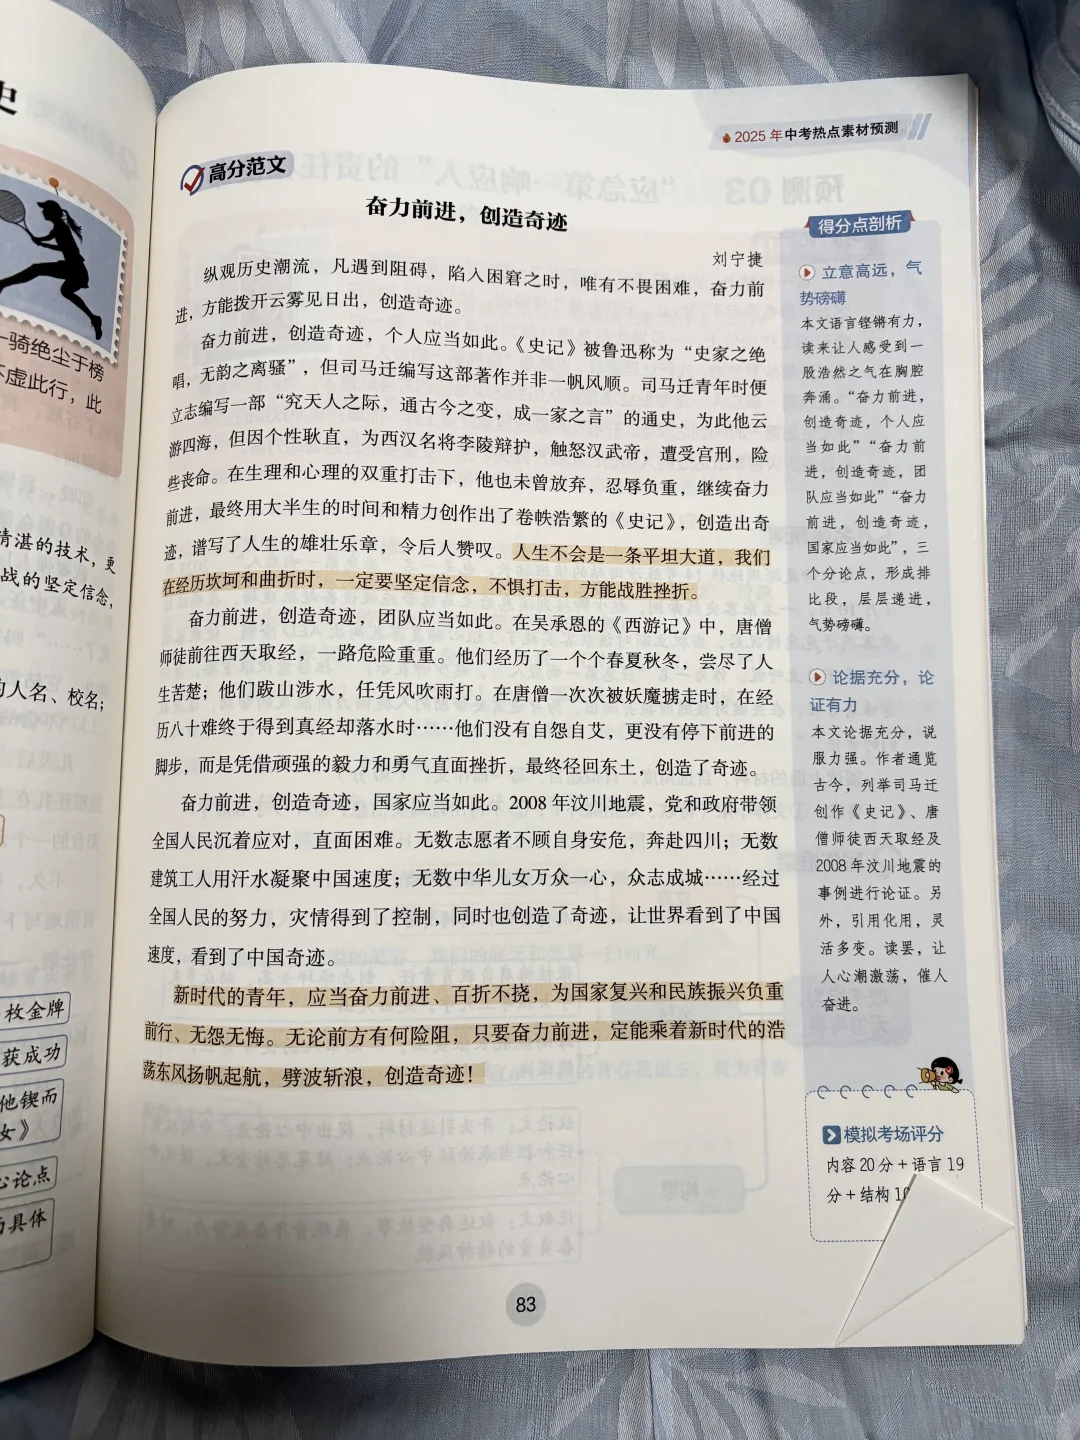 史
一骑绝尘于榜
不虚此行，此
情湛的技术，更
战的坚定信念，
的人名、校名；
枚金牌
获成功
他锲而
女》
心论点
与具体
2025年中考热点素材预测
高分范文
奋力前进，创造奇迹
刘宁捷
纵观历史潮流，凡遇到阻碍，陷入困窘之时，唯有不畏困难，奋力前
进，方能拨开云雾见日出，创造奇迹。
奋力前进，创造奇迹，个人应当如此。《史记》被鲁迅称为“史家之绝
唱，无韵之离骚”，但司马迁编写这部著作并非一帆风顺。司马迁青年时便
立志编写一部“究天人之际，通古今之变，成一家之言”的通史，为此他云
游四海，但因个性耿直，为西汉名将李陵辩护，触怒汉武帝，遭受宫刑，险
些丧命。在生理和心理的双重打击下，他也未曾放弃，忍辱负重，继续奋力
前进，最终用大半生的时间和精力创作出了卷帙浩繁的《史记》，创造出奇
迹，谱写了人生的雄壮乐章，令后人赞叹。人生不会是一条平坦大道，我们
在经历坎坷和曲折时，一定要坚定信念，不惧打击，方能战胜挫折。
奋力前进，创造奇迹，团队应当如此。在吴承恩的《西游记》中，唐僧
师徒前往西天取经，一路危险重重。他们经历了一个个春夏秋冬，尝尽了人
生苦楚；他们跋山涉水，任凭风吹雨打。在唐僧一次次被妖魔掳走时，在经
历八十难终于得到真经却落水时……他们没有自怨自艾，更没有停下前进的
脚步，而是凭借顽强的毅力和勇气直面挫折，最终径回东土，创造了奇迹。
奋力前进，创造奇迹，国家应当如此。2008年汶川地震，党和政府带领
全国人民沉着应对，直面困难。无数志愿者不顾自身安危，奔赴四川；无数
建筑工人用汗水凝聚中国速度；无数中华儿女万众一心，众志成城……经过
全国人民的努力，灾情得到了控制，同时也创造了奇迹，让世界看到了中国
速度，看到了中国奇迹。
新时代的青年，应当奋力前进、百折不挠，为国家复兴和民族振兴负重
前行、无怨无悔。无论前方有何险阻，只要奋力前进，定能乘着新时代的浩
荡东风扬帆起航，劈波斩浪，创造奇迹！
得分点剖析
立意高远，气
势磅礴
本文语言铿锵有力，
读来让人感受到一
股浩然之气在胸腔
奔涌。“奋力前进，
创造奇迹，个人应
当如此”“奋力前
进，创造奇迹，团
队应当如此”“奋力
前进，创造奇迹，
国家应当如此”，三
个分论点，形成排
比段，层层递进，
气势磅礴。
论据充分，论
证有力
本文论据充分，说
服力强。作者通览
古今，列举司马迁
创作《史记》、唐
僧师徒西天取经及
2008年汶川地震的
事例进行论证。另
外，引用化用，灵
活多变。读罢，让
人心潮激荡，催人
奋进。
模拟考场评分
内容20分+语言19
分+结构
83